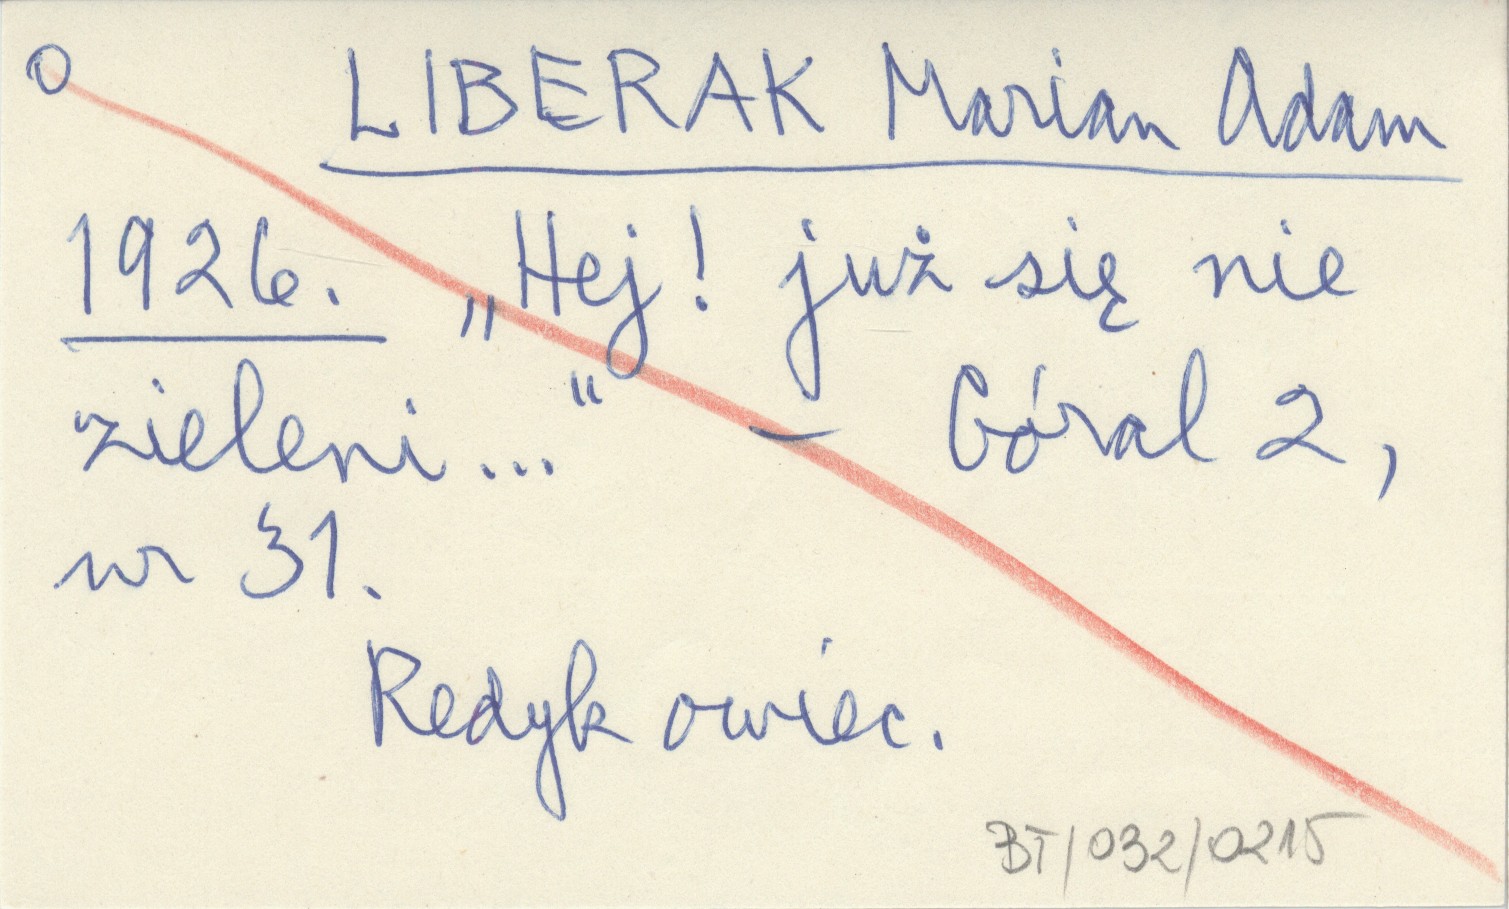 O LIBERAK Marian Adam
1926. „Hej! już się nie
zieleni..." — Góral 2,
nr 31.
Redyk owiec.
BT/032/0215